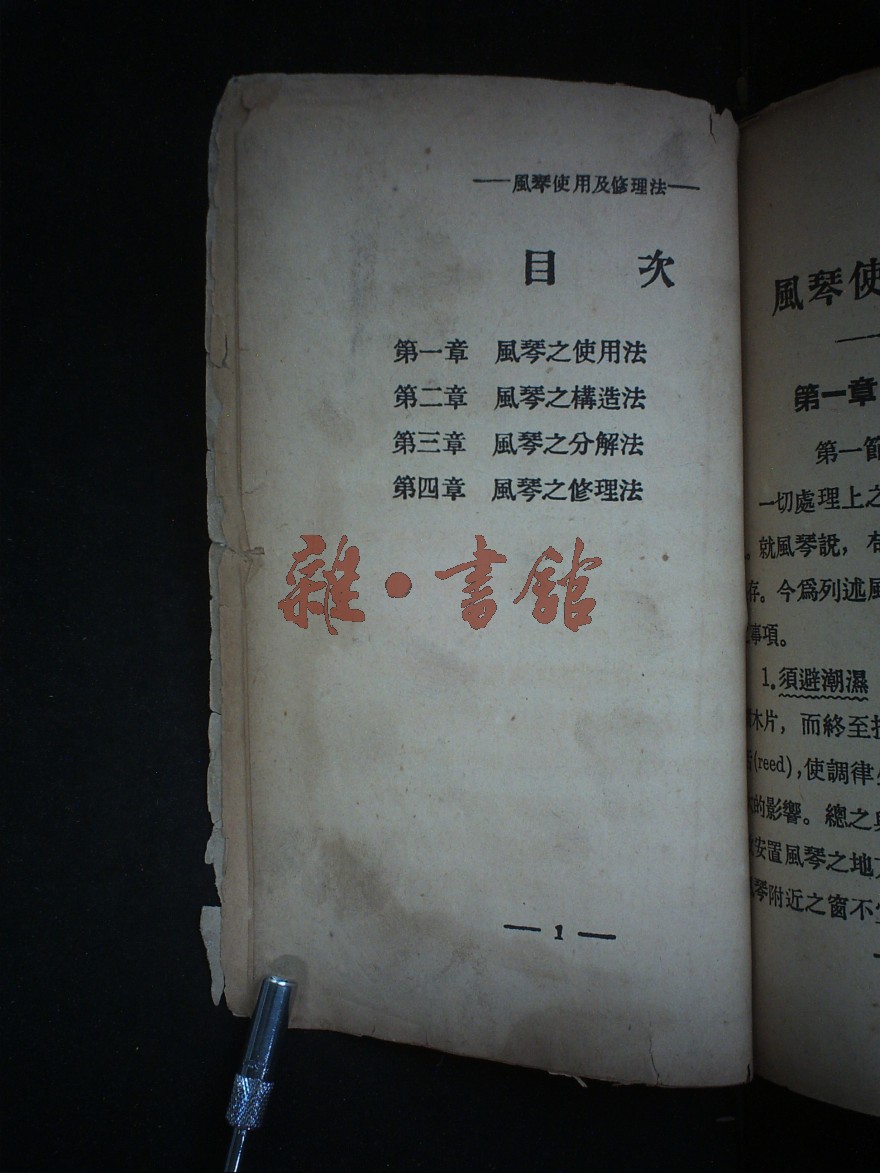 ——風琴使用及修理法——
目 次
第一章 風琴之使用法
第二章 風琴之構造法
第三章 風琴之分解法
第四章 風琴之修理法
雜·書館
— 1 —
風琴使
第一章
第一節
一切處理上之
，就風琴說，
存。今爲列述風
事項。
1.須避潮濕
木片，而終至
(reed)，使調律
的影響。總之
安置風琴之地
琴附近之窗不